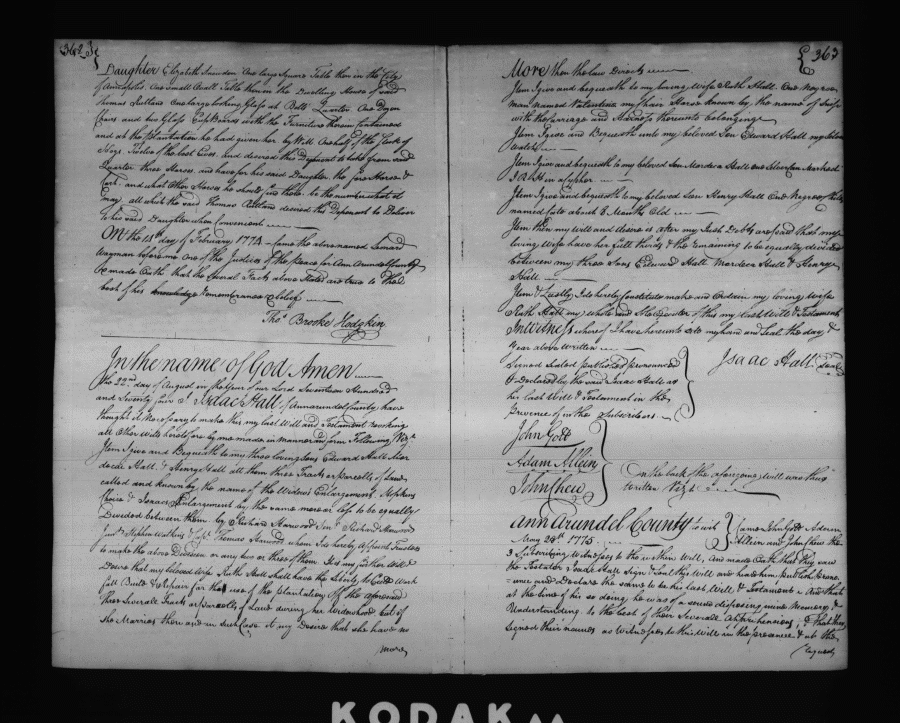 362
Daughter Elizabeth Snowden One large Square Table then in the City
of Annapolis, One Small Ovall Table then in the Dwelling House of said
Thomas Rutland One large looking Glass at Bells Quarter, One Dozen
Chairs and two Glass Cup Boards with the Furniture therein Contained
and at the plantation he had given her by Will One half of the Stock of
Hogs Twelve of the best Ewes, and desired this Deponent to take from said
Quarter three Horses and have for his said Daughter, the Horse &
Cart, and what Other Horses he should to the number that it
may all which the said Thomas Rutland desired this Deponent to Deliver
to his said Daughter when Convenient
On the 18th day of February 1775 Came the above named Leonard
Wayman before me One of the Justices of the Peace for Ann Arundel County
& made Oath that the Several Facts above Stated are true to the
best of his knowledge remembrance & belief
Thos Brooke Hodgkin
In the name of God Amen
the 22nd day of August in the Year of our Lord Seventeen Hundred
and Seventy four I Isaac Hall of Annarundel County, have
thought it Necessary to make this my last Will and Testament revoking
all Other wills heretofore by me made in manner and form Following, Viz.
Item I give and Bequeath to my three loving sons Edward Hall Mor
decai Hall & Henry Hall all them three Tracts or parcells of Land
called and known by the name of the Widows Enlargement, Hopkins
Choice & Isaacs Enlargement be the same more or less to be equally
Divided between them by Richard Harwood Senr & Richard Harwood
Junr & Stephen Watkins & Capt Thomas Harwood whom I do hereby Appoint Trustees
to make the above Division or any two or three of them It is my further Will &
Desire that my beloved Wife Ruth Hall shall have the Liberty to Work
fall Build & Repair for the use of the Plantation off the aforesaid
three Severall Tracts or parcells of Land during her Widowhood but if
She Marries then and in such Case it my Desire that she have no
more
363
More then the law Directs
Item I give and bequeath to my loving Wife Ruth Hall One Negroe
man Named Valentine my Chair Horse known by the name of
with the Carriage and Harness thereunto belonging
Item I give and Bequeath unto my beloved Son Edward Hall my Silver
watch
Item I give and bequeath to my beloved Son Mordecai Hall one Silver Can Marked
I R H in a Cypher
Item I give and bequeath to my beloved Son Henry Hall One Negroe
named about 8 Months Old
Item then my will and desire is after my Just Debts are paid that my
loving Wife have her full thirds & the remaining to be equally divided
between my three Sons Edward Hall Mordecai Hall & Henry
Hall
Item & Lastly I do hereby Constitute make and Ordain my loving Wife
Ruth Hall my whole and Sole Executor of this my last Will & Testament
In Witness whereof I have hereunto set my hand and Seal the day &
Year above written
Signed Sealed published pronounced
& Declared by the said Isaac Hall as
his last Will & Testament in the
presence of us the Subscribers
Isaac Hall Seal
John Gott
Adam Allein
John Chew
On the back of the aforegoing will was thus
written Vizt
Ann Arundel County to wit
May 28th 1775
Came John Gott Adam
Allein and John Chew the
3 Subscribing Witnesses to the within Will, and made Oath that they saw
the Testator Isaac Hall Sign & Seal this Will and heard him publish pronou
unce and Declare the same to be his last Will & Testament & and that
at the time of his so doing he was of a sound disposing mind Memory &
Understanding to the best of their Severall Apprehensions, & that they
signed their names as Witnesses to this Will in the presence & at the
request
KODAK